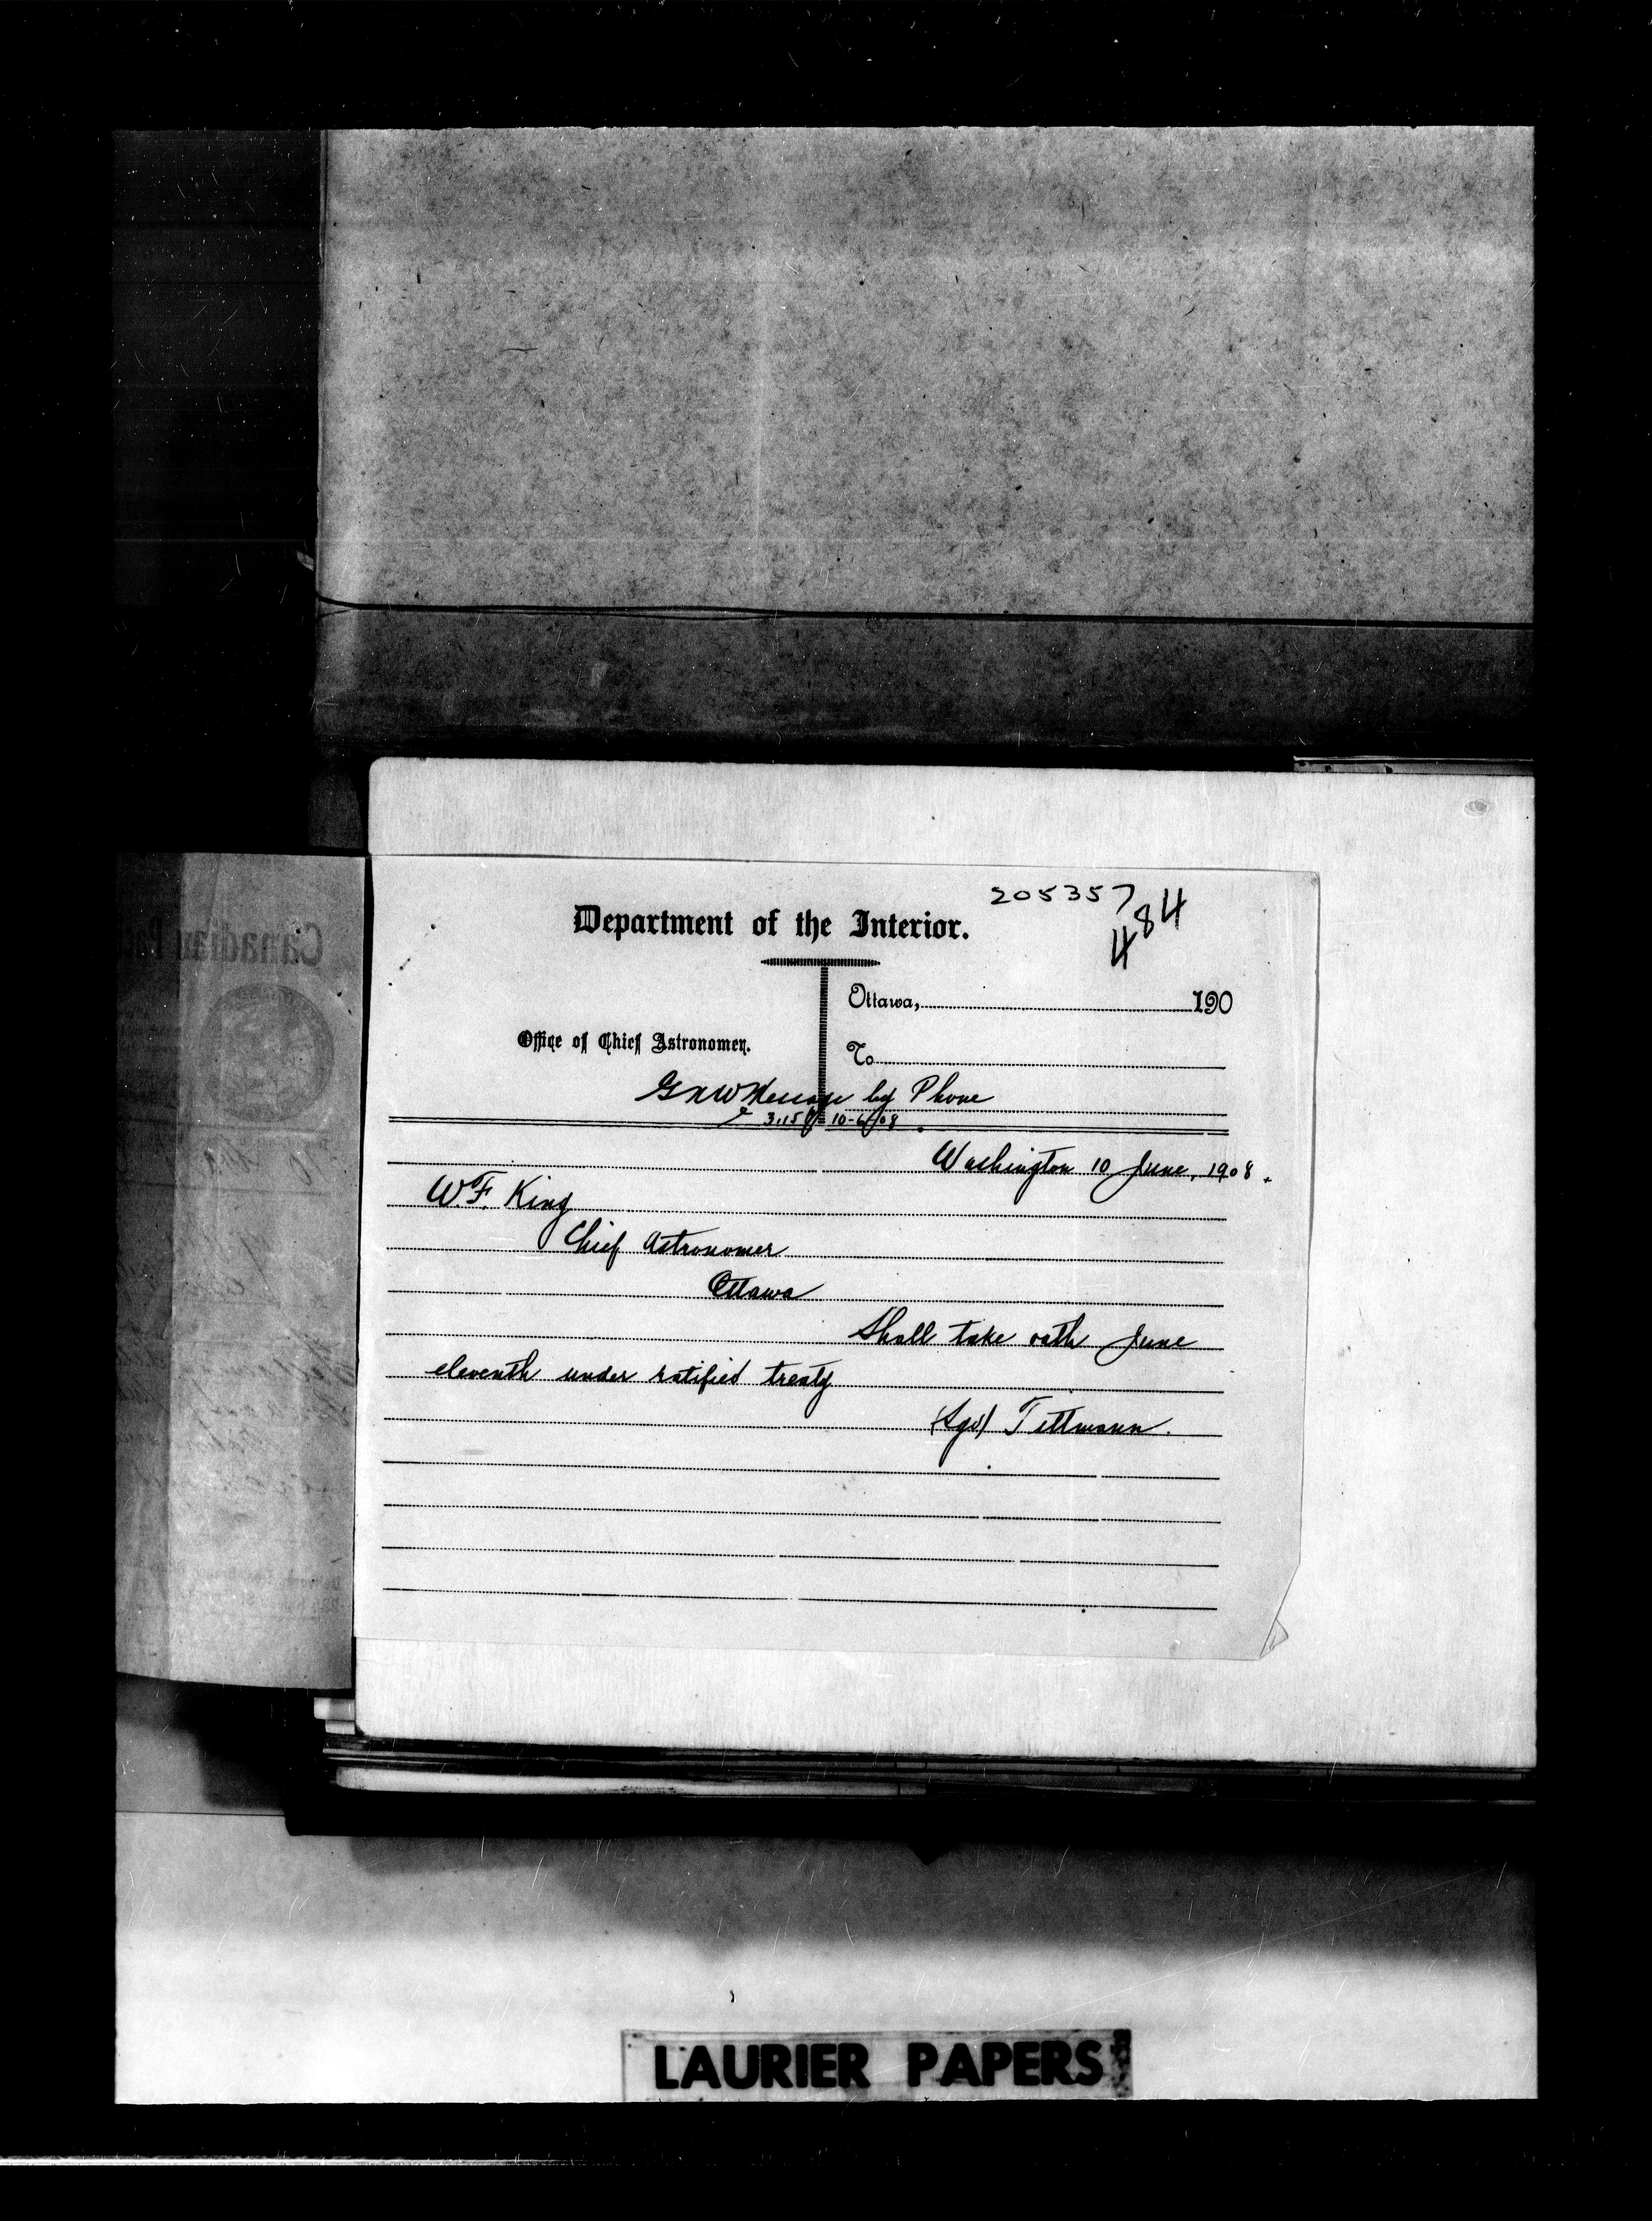 205357
484
Department of the Interior.
Ottawa, 190
Office of Chief Astronomer.
To
G N W Message by Phone
3.15 P 10-6-08
Washington 10 June, 1908.
W. F. King
Chief Astronomer
Ottawa
Shall take oath June
eleventh under ratified treaty
(Sgd) Tittmann.
LAURIER PAPERS